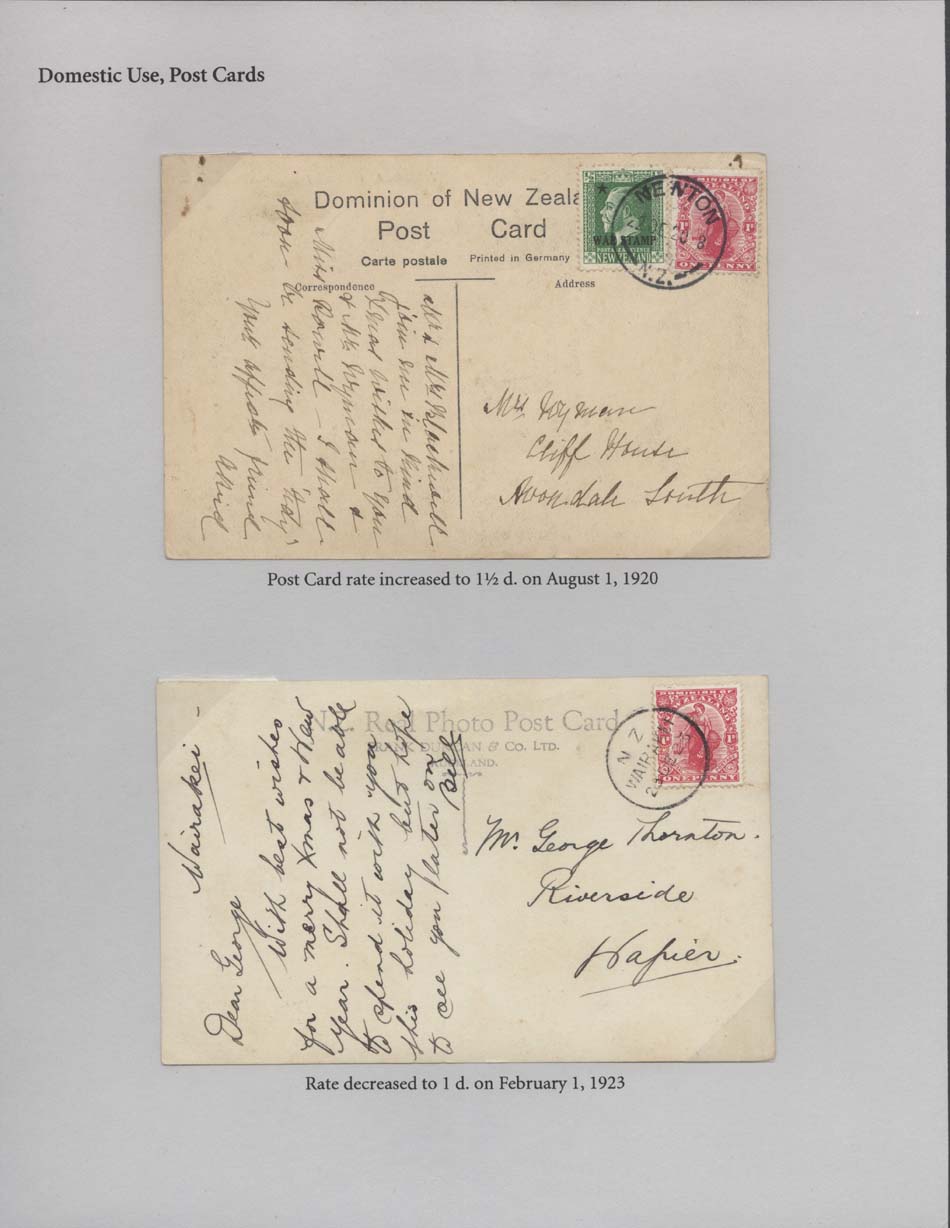 Domestic Use, Post Cards
Dominion of New Zeala
Post Card
Carte postale Printed in Germany
Correspondence
Address
WAR STAMP
NEW ZEALAND
DOMINION OF
1D
ONE PENNY
NEWTON
N.Z.
Mr & Mrs Blackwell
join me in kind
Xmas wishes to you
& Mr Wyman &
Miss Rowell – I shall
soon be sending the "Lady"
Your affecte friend
Mrs Wyman
Cliff House
Avondale South
Post Card rate increased to 1½ d. on August 1, 1920
N.Z. Real Photo Post Card
FRANK DUNCAN & CO. LTD.
AUCKLAND.
DOMINION OF
NEW ZEALAND
1D 1D
ONE PENNY
N Z
WAIRAKEI
Wairakei –
Dear George
With best wishes
for a merry Xmas & New
Year. Shall not be able
to spend it with you
this holiday but hope
to see you later on
Bill
Mr. George Thornton.
Riverside
Napier.
Rate decreased to 1 d. on February 1, 1923